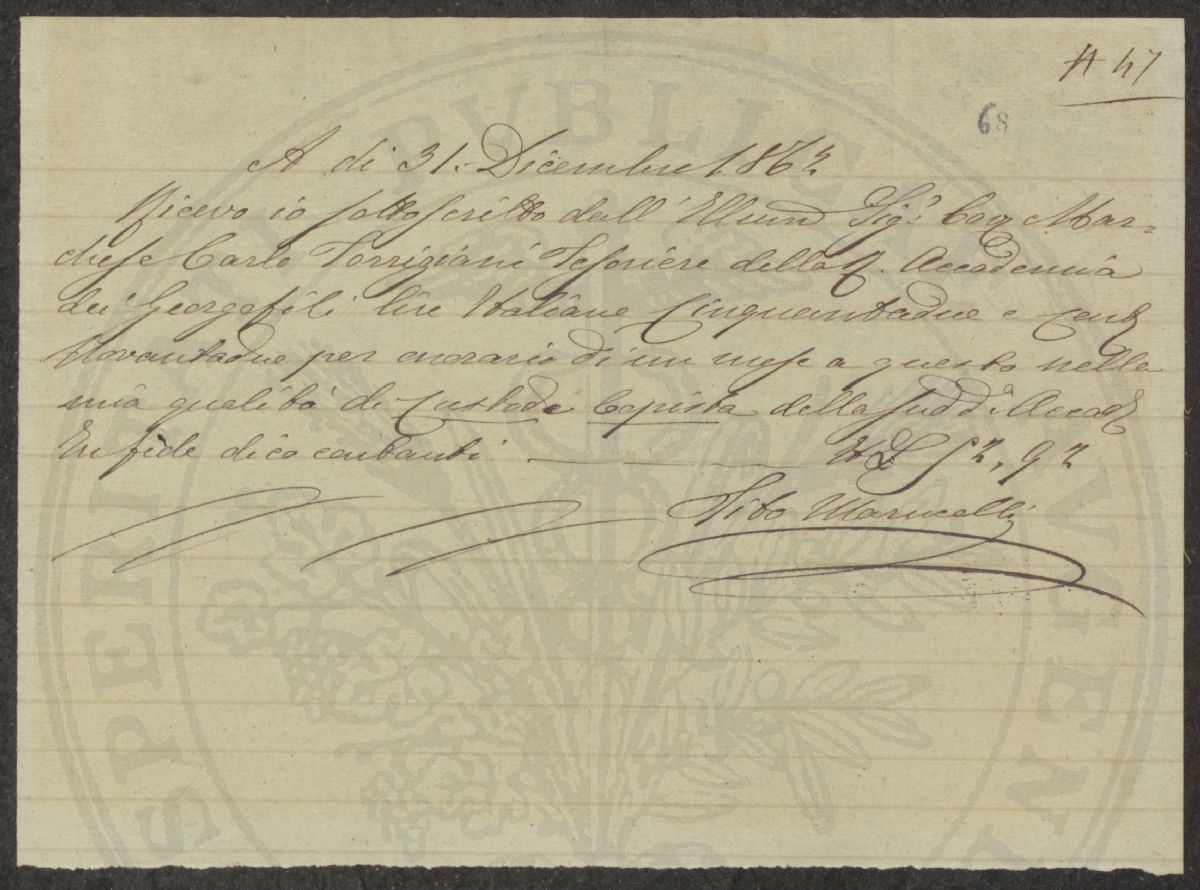 47
68
A di 31. Dicembre 1862
Ricevo io sottoscritto dall' Illmo Sigr. Cav Mar=
chese Carlo Torrigiani Tesoriere della R. Accademia
dei Georgofili lire Italiane Cinquantadue e Cent
Novantadue per onorario di un mese a questo nella
mia qualità di Custode Copista della sudda. Accad
In fede dico contanti ——— L 52,92
Tito Marucelli
PUBLIC